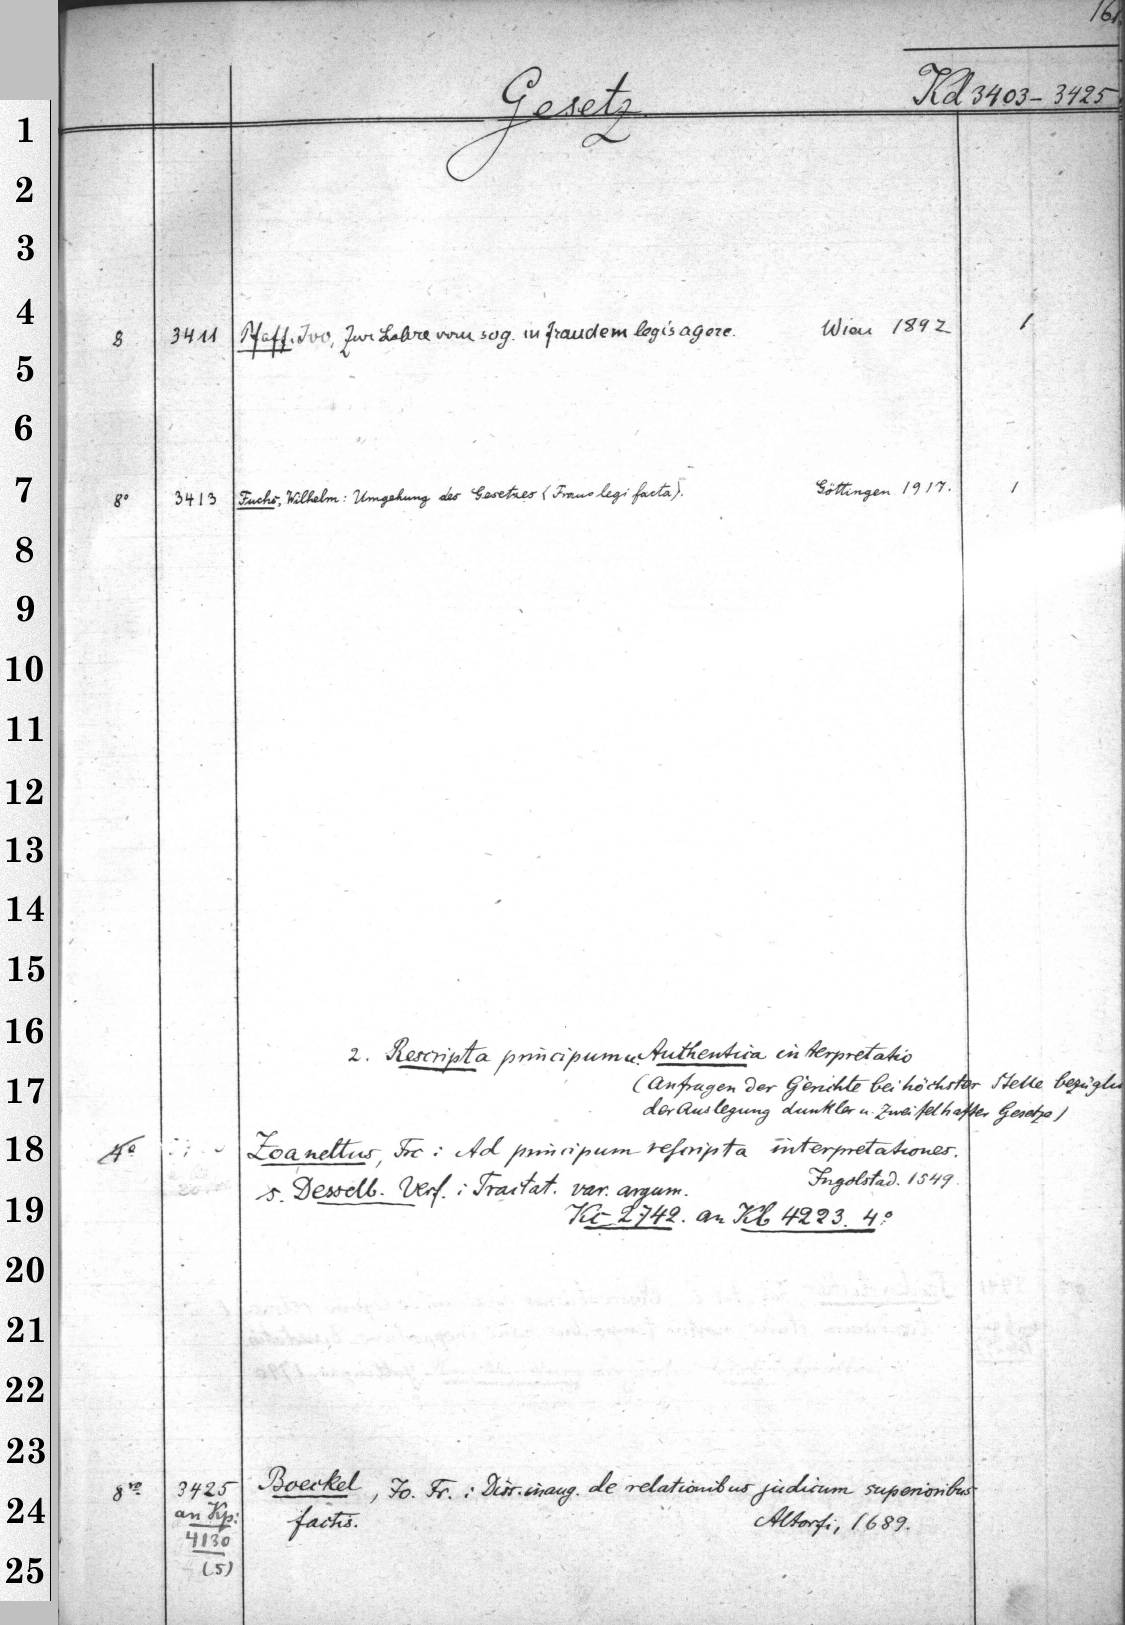 161
Gesetz
Kd 3403-3425
1
2
3
4
8 3411 Pfaff, Ivo, Zur Lehre vom sog. in fraudem legis agere. Wien 1892 1
5
6
7 8° 3413 Fuchs, Wilhelm: Umgehung des Gesetzes (Fraus legi facta). Göttingen 1917. 1
8
9
10
11
12
13
14
15
16
2. Rescripta principum u. Authentica interpretatio
17 (Anfragen der Gerichte bei höchster Stelle bezügli
der Auslegung dunkler u. zweifelhafter Gesetze)
18 4° Zoanettus, Frc: Ad principum rescripta interpretationes.
s. Desselb. Verf.: Tractat. var. argum. Ingolstad. 1549.
19 Kc 2742. an Kb 4223. 4°
20
21
22
23
8vo 3425 Boeckel, Jo. Fr.: Diss. inaug. de relationibus judicum superioribus
24 an Kp: factis. Altorfi, 1689.
4130
25 (5)